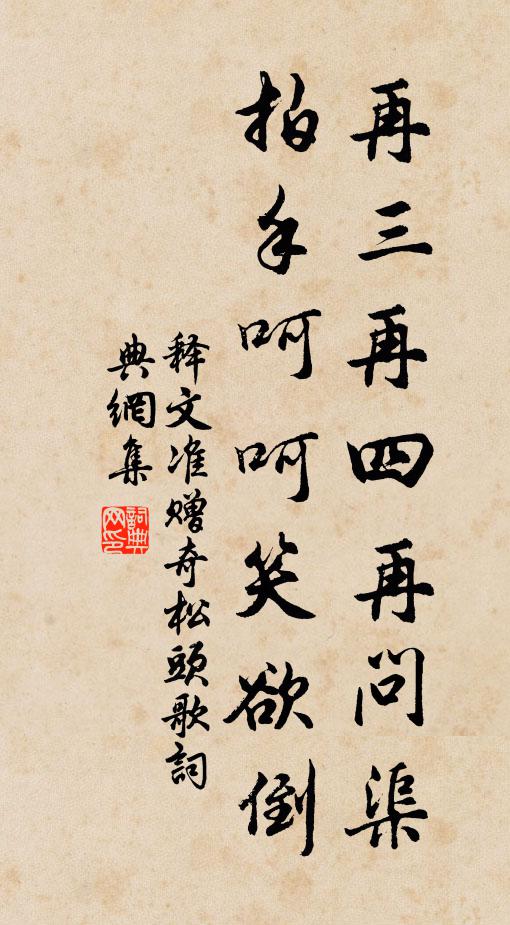 再三再四再问渠
拍手呵呵笑欲倒
释文准赠奇松头歌词
典網集
詞典网印